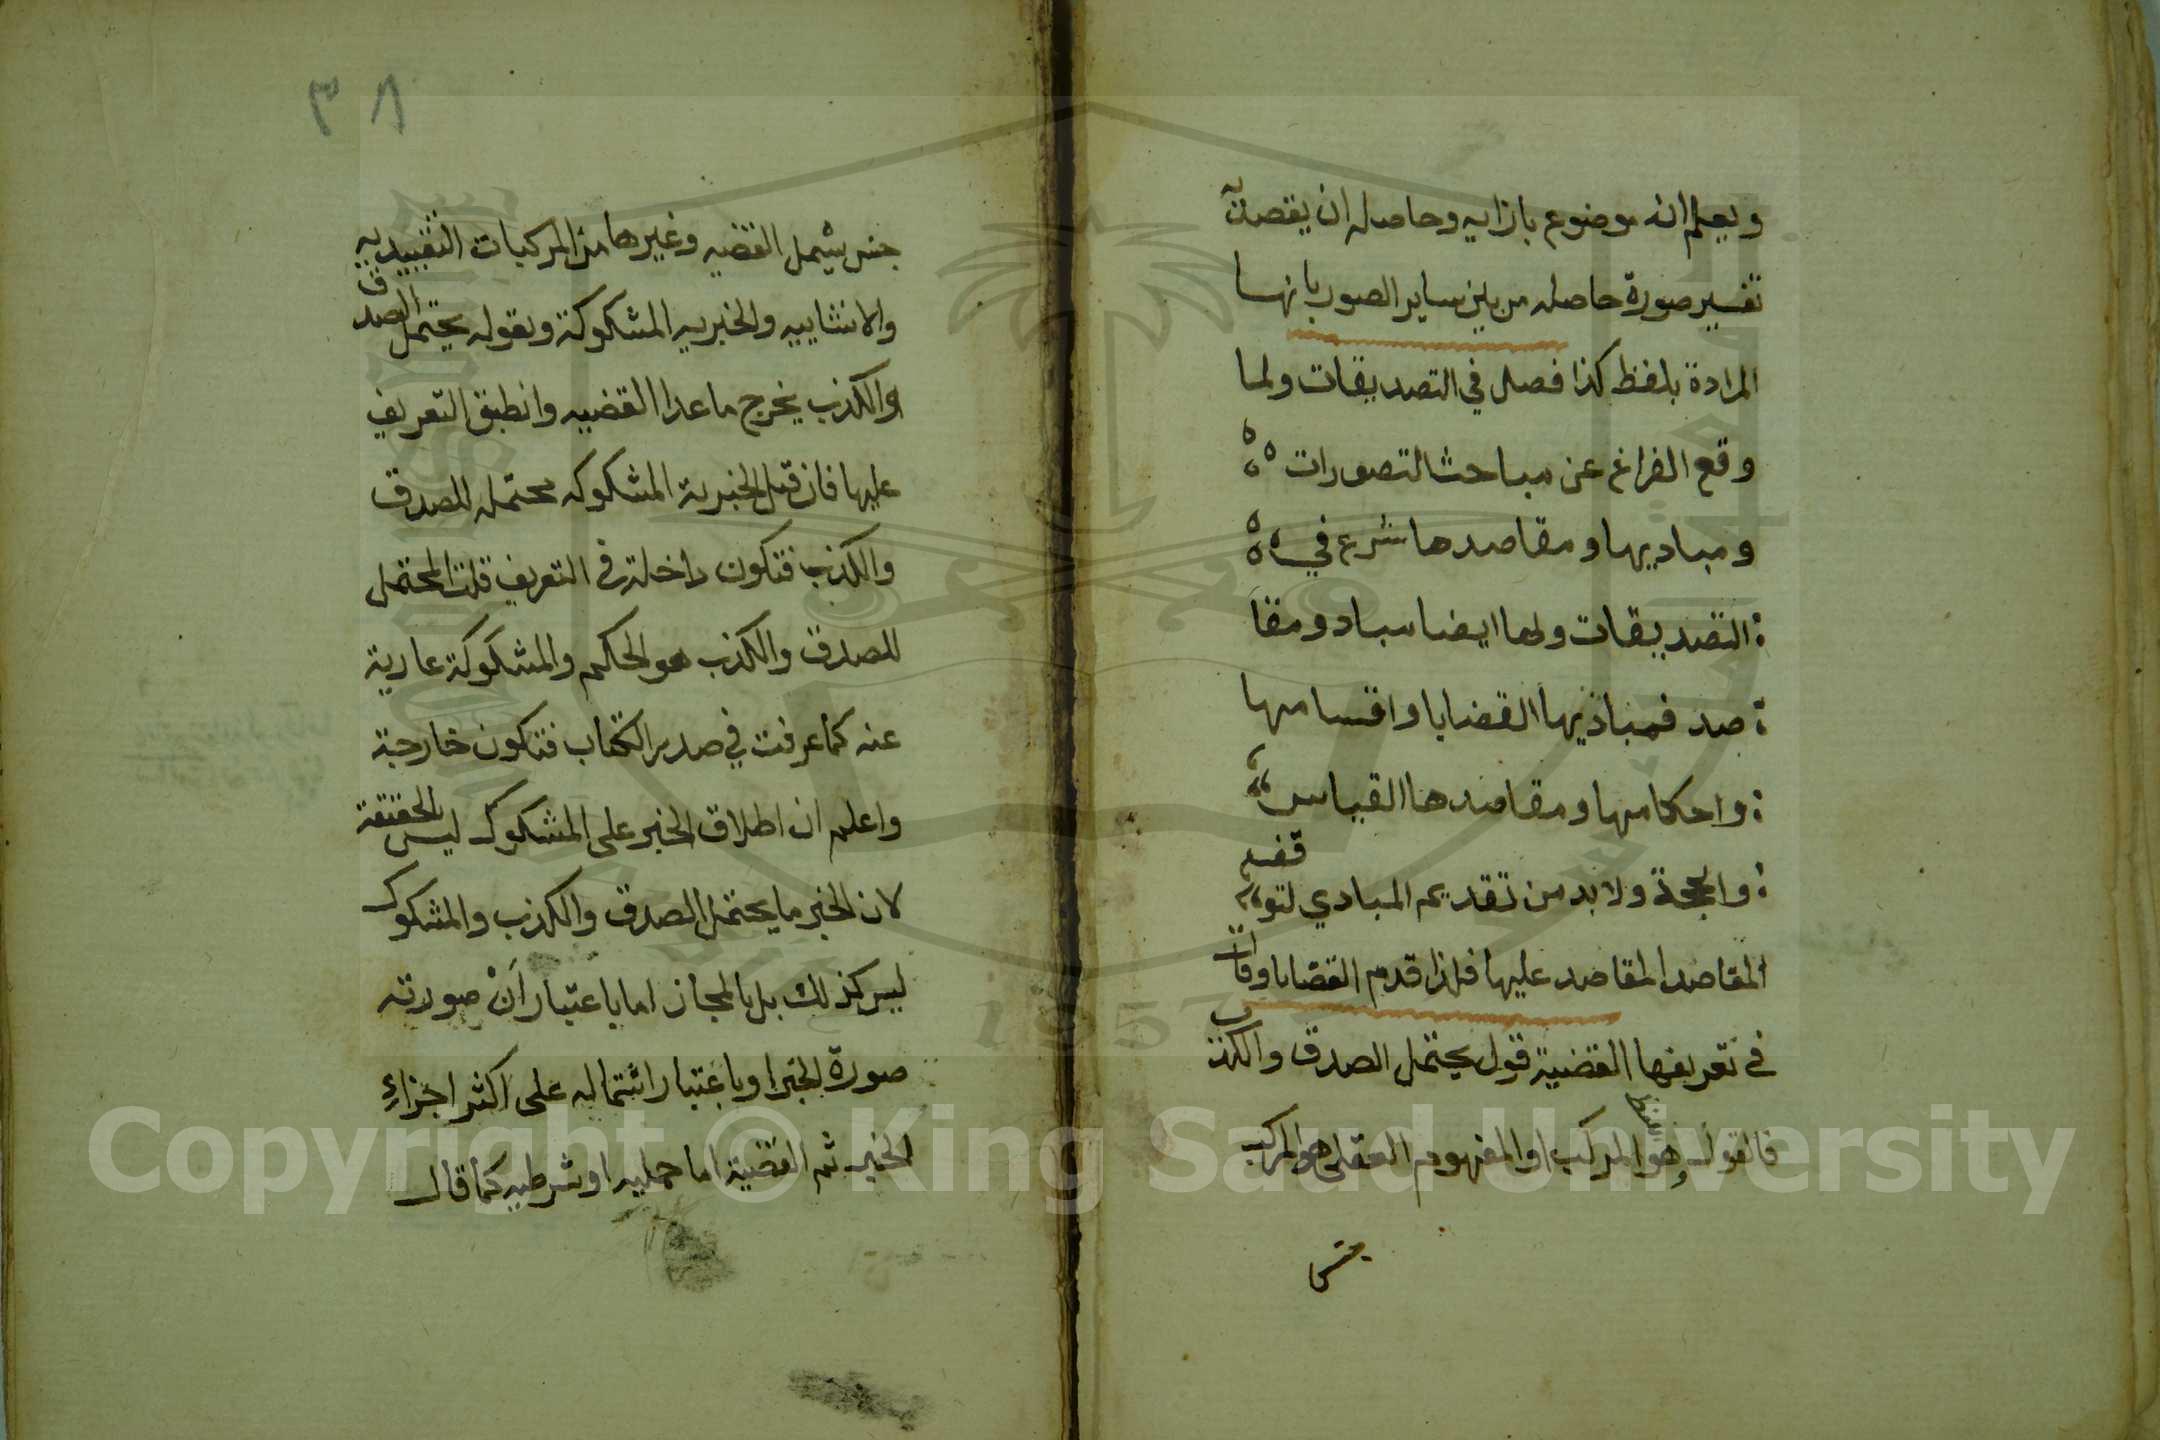 ويعلم انه موضوع بازايه وحاصله ان يقصد
تفسير صورة حاصله من بين ساير الصور بانها
المرادة بلفظ كذا فصل في التصديقات ولما
وقع الفراغ عن مباحث التصورات
ومباديها ومقاصدها شرع في
التصديقات ولها ايضا مباد ومقا
صد فمباديها القضايا واقسامها
واحكامها ومقاصدها القياس
والحجة ولا بد من تقديم المبادي لتو قف
المقاصد المقاصد عليها فلذا قدم القضايا وقال
في تعريفها القضية قول يحتمل الصدق والكذب
فالقول وهو اللفظ المركب او المفهوم العقلي هو المركب
جنس
٣٨
جنس يشمل القضيه وغيرها من المركبات التقييديه
والانشاييه والخبريه المشكوكة وبقوله يحتمل الصدق
والكذب يخرج ما عدا القضيه وانطبق التعريف
عليها فان قيل الخبرية المشكوكه محتمله للصدق
والكذب فتكون داخلة في التعريف قلت المحتمل
للصدق والكذب هو الحكم والمشكوكة عارية
عنه كما عرفت في صدر الكتاب فتكون خارجة
واعلم ان اطلاق الخبر على المشكوك ليس بالحقيقة
لان الخبر ما يحتمل الصدق والكذب والمشكوك
ليس كذلك بل بالمجاز اما باعتبار أنْ صورته
صورة الخبر او باعتبار اشتماله على اكثر اجزاءِ
الخبر ثم القضية اما حمليه او شرطيه كما قال
Copyright © King Saud University
1957